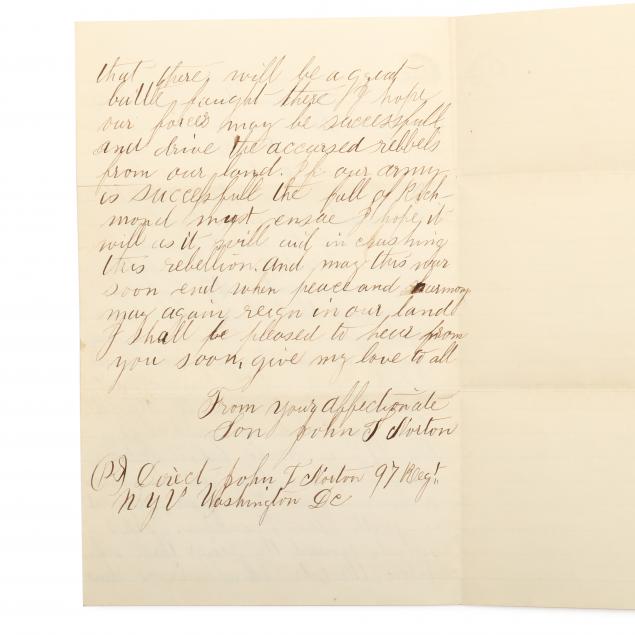 that there will be a great
battle faught there I hope
our forces may be successfull
and drive the accursed rebbels
from our land. If our army
is successfull the fall of Rich-
mond must ensue I hope it
will as it will aid in crushing
this rebellion. and may this war
soon end when peace and harmony
may again reign in our land
I shall be pleased to hear from
you soon, give my love to all
From your affectionate
Son John T Norton
(PS) Direct John T Norton 97 Regt.
N Y V Washington DC